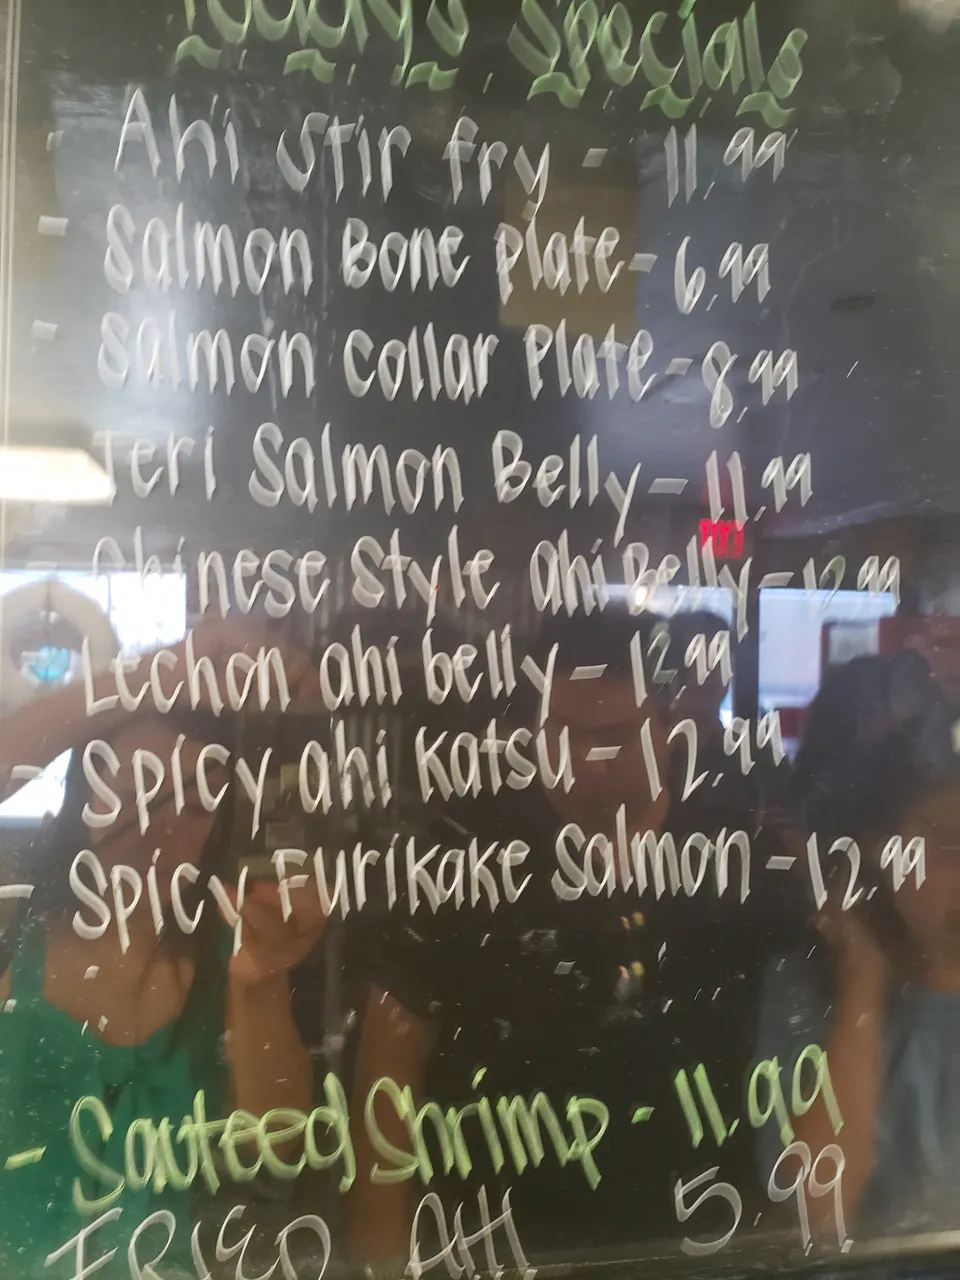 Today's Specials
- Ahi Stir fry - 11.99
- Salmon Bone Plate - 6.99
- Salmon Collar Plate - 8.99
Teri Salmon Belly - 11.99
- Chinese Style ahi Belly - 12.99
Lechon ahi belly - 12.99
- Spicy ahi Katsu - 12.99
- Spicy Furikake Salmon - 12.99
- Sauteed Shrimp - 11.99
FRIED AHI 5.99